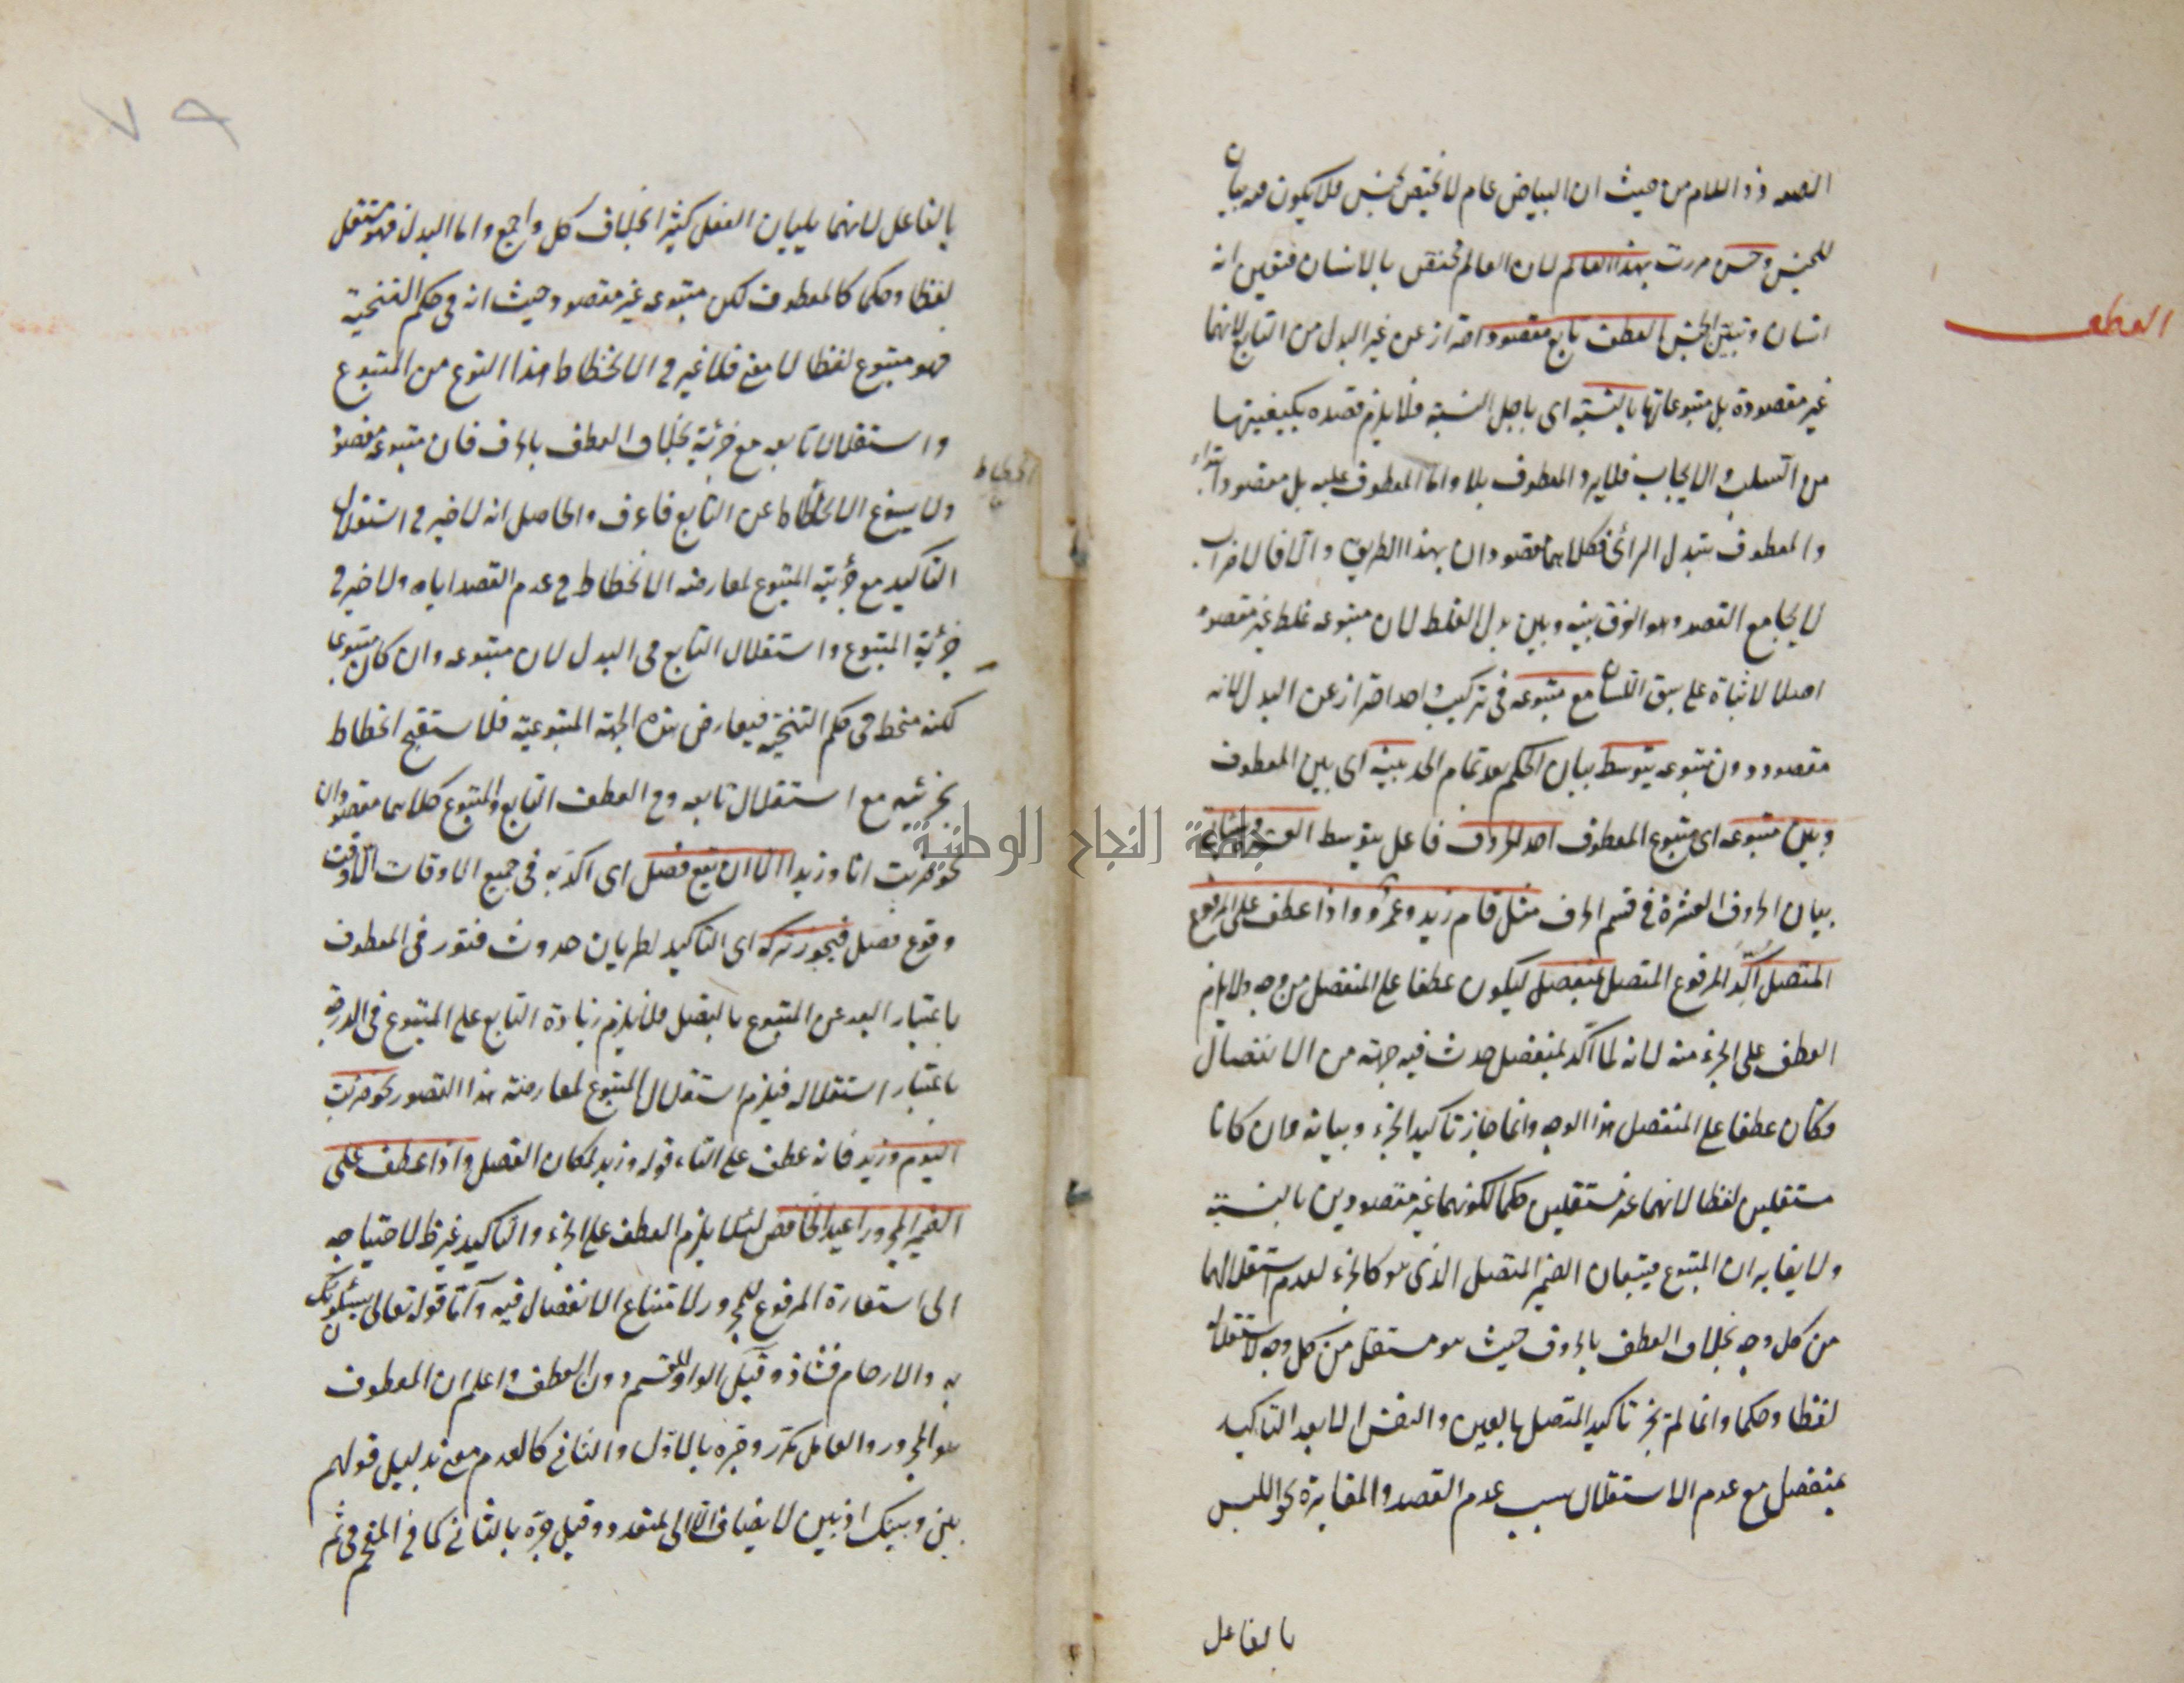 الصفه ذو اللام من حيث ان البياض عام لا يختص بجنس فلا يكون فيه بيان
للجنس وحسن مررت بهذا العالم لان العالم مختص بالانسان فتعين انه
انسان وتبين الجنس العطف تابع مقصود احتراز عن غير البدل من التابع لانها
غير مقصودة بل متبوعاتها بالنسبة اى باجل النسبة فلا يلزم قصده بكيفيتها
من السلب والايجاب فلا يرد المعطوف بلا واما المعطوف عليه بل مقصود ابتداء
والمعطوف بتبدل الرائ فكلاهما مقصودان بهذا الطريق والا فالاضراب
لا يجامع القصد وهو الفرق بينه وبين بدل الغلط لان متبوعه غلط غير مقصود
اصلا لاثباته على سبق اللسان مع متبوعه فى تركيب واحد احتراز عن البدل لانه
مقصود دون متبوعه يتوسط بيان الحكم بعد تمام الحد بينه اى بين المعطوف
وبين متبوعه اى متبوع المعطوف احد الحروف فاعل يتوسط العشرة وسياتى
بيان الحروف العشرة فى قسم الحرف مثل قام زيد وعمرو واذا عطف على المرفوع
المتصل اكد المرفوع المتصل بمنفصل ليكون عطفا على المنفصل من وجه ولا يلزم
العطف على الجزء منه لانه لما اكد بمنفصل حدث فيه جهته من الانفصال
فكان عطفا على المنفصل بهذا الوجه وانما جاز تاكيد الجزء وبيانه وان كانا
مستقلين لفظا لانهما غير مستقلين حكما لكونهما غير مقصودين بالنسبة
ولا يغايران المتبوع فيتبعان الضمير المتصل الذى هو كالجزء لعدم استقلالهما
من كل وجه بخلاف العطف بالحروف حيث هو مستقل من كل وجه لاستقلاله
لفظا وحكما وانما لم يجز تاكيد المتصل بالعين والنفس الا بعد التاكيد
بمنفصل مع عدم الاستقلال بسبب عدم القصد والمغايرة نحو اللبس
بالفاعل
العطف
٧٩
بالفاعل لانهما يليان الفعل كثيرا بخلاف كل واجمع واما البدل فهو مستقل
لفظا وحكما كالمعطوف لكن متبوعه غير مقصود حيث انه فى حكم التنحية
فهو متبوع لفظا لا معنى فلا ضير فى الانحطاط هذا النوع من المتبوع
واستقلال تابعه مع جزئية بخلاف العطف بالحرف فان متبوعه مقصود
ولا يسوغ الانحطاط عن التابع فاعرف والحاصل انه لا ضير فى استقلال
التاكيد مع جزئية المتبوع لمعارضة الانحطاط فى عدم القصد اياه ولا ضير فى
جزئية المتبوع واستقلال التابع فى البدل لان متبوعه وان كان متبوعا
لكنه منحط فى حكم التنحية فيعارض هذه الجهة المتبوعية فلا يستقبح انحطاط
بجزئية مع استقلال تابعه وفى العطف التابع والمتبوع كلاهما مقصودان
نحو ضربت انا وزيد الا ان يقع فصل اى اكد به فى جميع الاوقات الا وقت
وقوع فصل فيجوز تركه اى التاكيد لطريان حدوث فتور فى المعطوف
باعتبار البعد عن المتبوع بالفصل فلا يلزم زيادة التابع على المتبوع فى الدرجة
باعتبار استقلاله فيلزم استقلال المتبوع لمعارضة هذا القصور نحو ضربت
اليوم وزيد فانه عطف على التاء قوله وزيد لمكان الفصل واذا عطف على
الضمير المجرور اعيد الخافض لئلا يلزم العطف على الجزء والتاكيد غير ظ لاحتياجه
الى استعارة المرفوع للمجرور لامتناع الانفصال فيه واما قوله تعالى تسئلون
به والارحام فشاذ وقيل الواو للقسم دون العطف واعلم ان المعطوف
هو المجرور والعامل مكرر وجره بالاول والثانى كالعدم معنى بدليل قولهم
بينى وبينك اذ بين لا يضاف الا الى متعدد وقيل جره بالثانى كما فى المقحم فى ثم
جامعة النجاح الوطنية